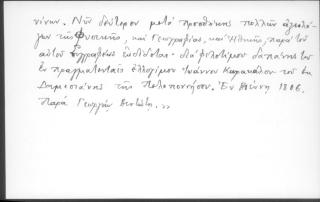 νίνων. Νῦν δεύτερον μετὰ προσθήκης πολλῶν ἀξιολό-
γων τῆς Φυσικῆς, καὶ Γεωγραφίας, καὶ Ἠθικῆς, παρὰ τοῦ
αὐτοῦ Συγγραφέως ἐκδίδοται· διὰ φιλοτίμου δαπάνης τοῦ
ἐν πραγματευταῖς ἐλλογίμου Ἰωάννου Καρακάλου τοῦ ἐκ
Δημητσάνης τῆς Πελοποννήσου. Ἐν Βιέννῃ 1806.
Παρὰ Γεωργίῳ Βενδώτῃ. »